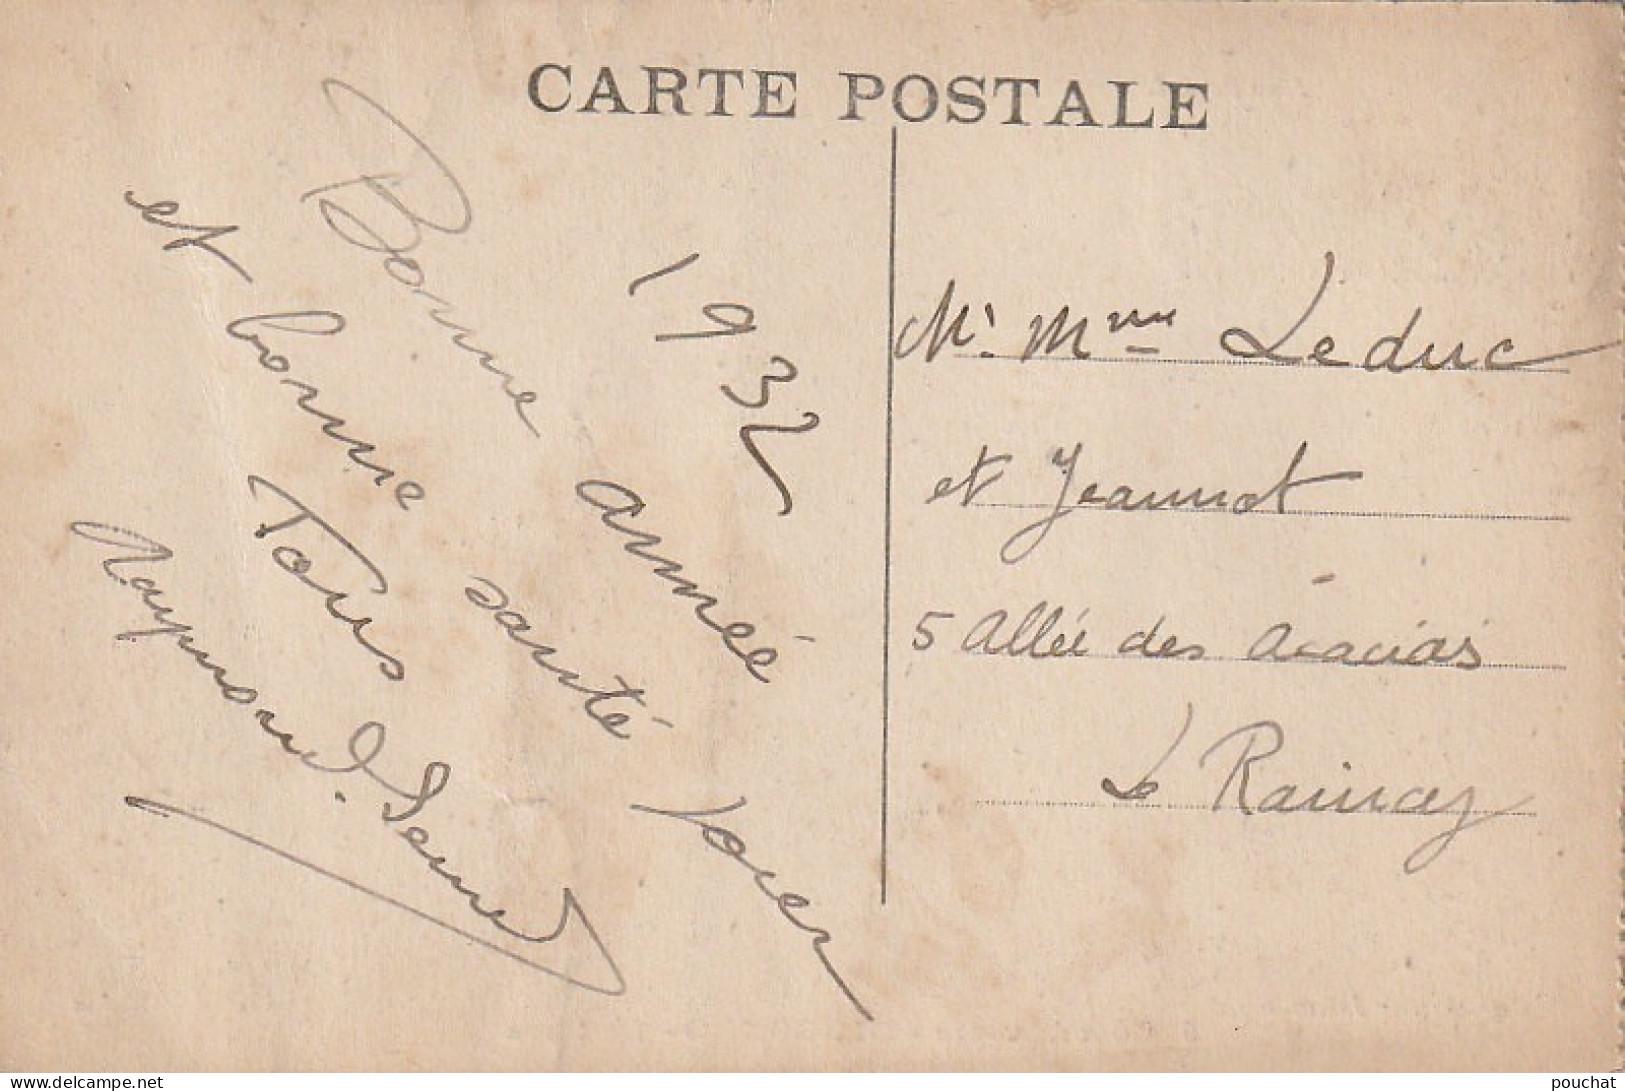 CARTE POSTALE
1932
Bonne année
et bonne santé pour
Tous
Raymond
Mr. Mme Leduc
et Jeannot
5 Allée des Acacias
Le Raincy
delcampe.net
pouchat